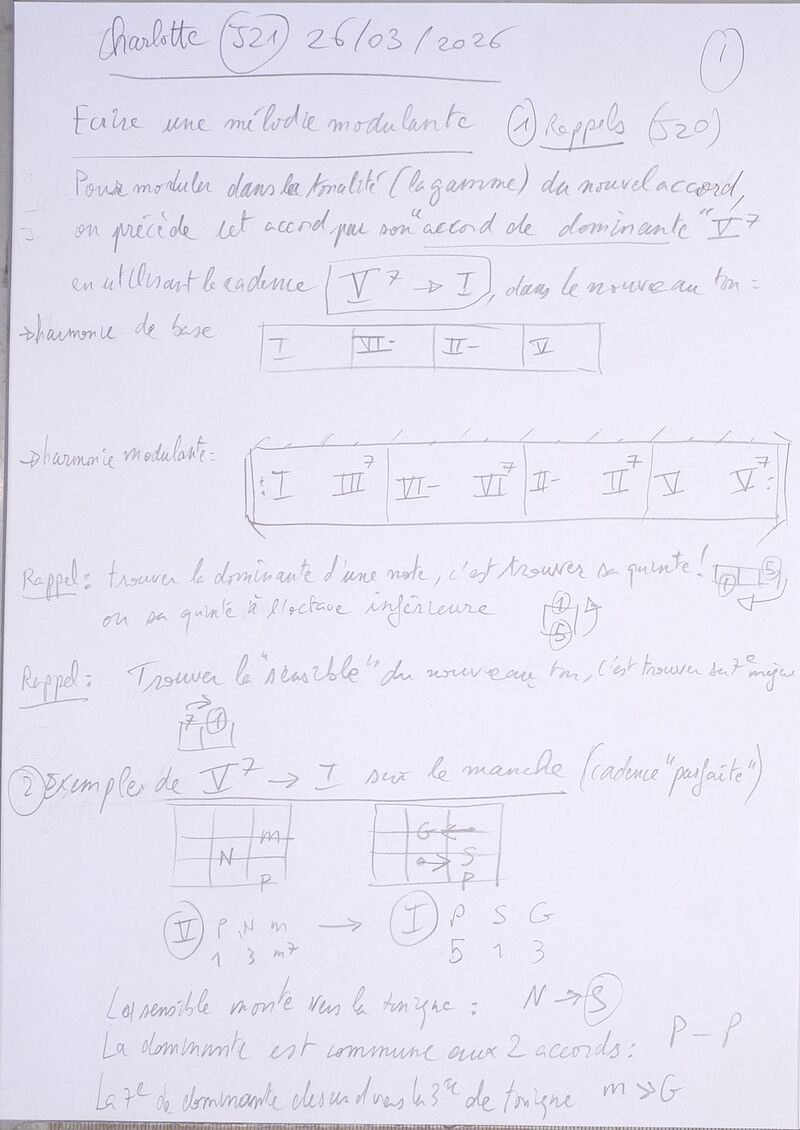 Charlotte J21 26/03/2026
1
Ecrire une mélodie modulante ① Rappels (J20)
Pour moduler dans la tonalité (la gamme) du nouvel accord,
on précède cet accord par son "accord de dominante" V7
en utilisant le cadence V7 → I, dans le nouveau ton =
→ harmonie de base
I VI- II- V
→ harmonie modulante:
: I III7 VI- VI7 II- II7 V V7 :
Rappel: trouver la dominante d'une note, c'est trouver sa quinte! 1 5
ou sa quinte à l'octave inférieure 1 5
Rappel: Trouver la "sensible" du nouveau ton, c'est trouver sa 7e majeure
7 1
② Exemples de V7 → I sur le manche (cadence "parfaite")
m G
N S
P P
V P N m → I P S G
1 3 m7 5 1 3
La sensible monte vers la tonique : N → S
La dominante est commune aux 2 accords: P - P
La 7e de dominante descend vers la 3ce de tonique m > G